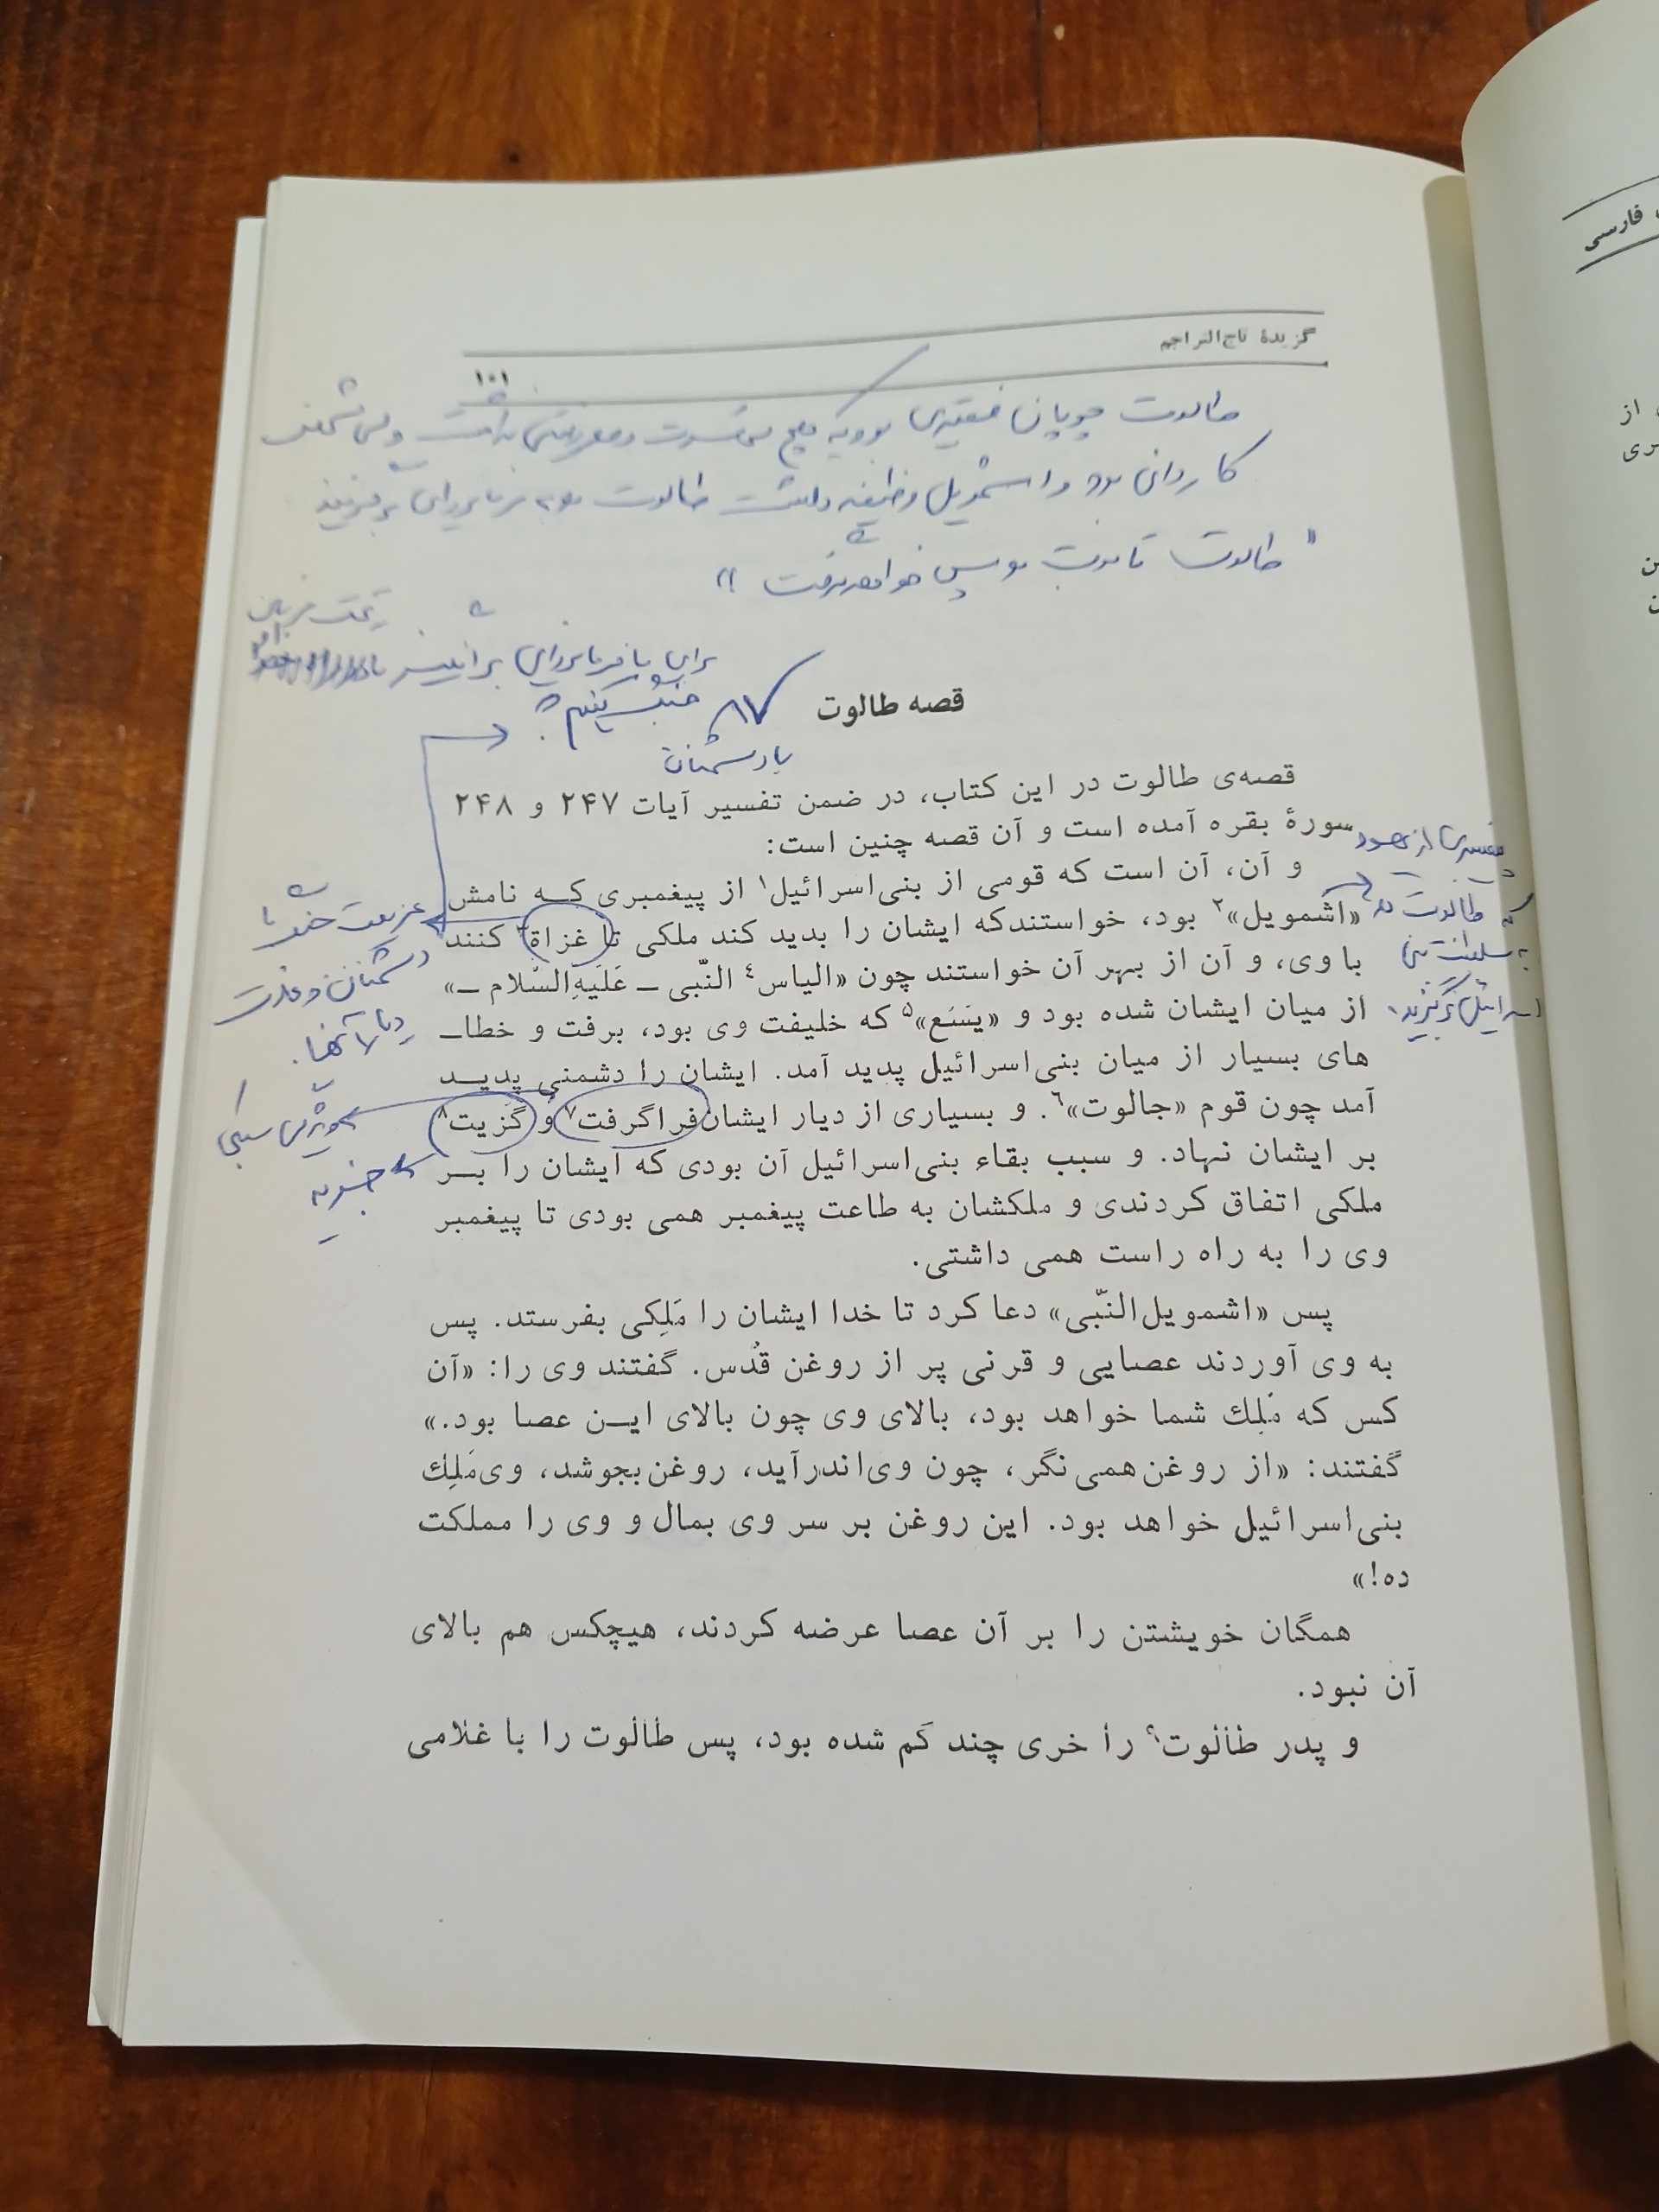 گزیدهٔ تاج‌التراجم
۱۰۱
طالوت چوپان فقیری بود که هیچ
کاردانی بود و اشمویل وظیفه داشت طالوت به فرمانروایی برگزیند
«طالوت تابوت پس خواهد گرفت»
برای ما فرمانروایی برانگیز تا
جنگ کنیم
با دشمنان
قصه طالوت
۸۷
قصه‌ی طالوت در این کتاب، در ضمن تفسیر آیات ۲۴۷ و ۲۴۸
سورهٔ بقره آمده است و آن قصه چنین است:
و آن، آن است که قومی از بنی‌اسرائیل۱ از پیغمبری کـه نامش
«اشمویل»۲ بود، خواستندکه ایشان را بدید کند ملکی تا غزاة۳ کنند
با وی، و آن از بهر آن خواستند چون «الیاس٤ النّبی ـ عَلَیهِ‌السَّلام ـ»
از میان ایشان شده بود و «یَسَع»۵ که خلیفت وی بود، برفت و خطاـ
های بسیار از میان بنی‌اسرائیل پدید آمد. ایشان را دشمنی پدیـد
آمد چون قوم «جالوت»۶. و بسیاری از دیار ایشان فراگرفت۷ و گَزیت۸
بر ایشان نهاد. و سبب بقاء بنی‌اسرائیل آن بودی که ایشان را بـر
ملکی اتفاق کردندی و ملکشان به طاعت پیغمبر همی بودی تا پیغمبر
وی را به راه راست همی داشتی.
پس «اشمویل‌النّبی» دعا کرد تا خدا ایشان را مَلِکی بفرستد. پس
به وی آوردند عصایی و قرنی پر از روغن قُدس. گفتند وی را: «آن
کس که مَلِك شما خواهد بود، بالای وی چون بالای ایـن عصا بود.»
گفتند: «از روغن همی نگر، چون وی‌اندرآید، روغن بجوشد، وی مَلِك
بنی‌اسرائیل خواهد بود. این روغن بر سر وی بمال و وی را مملکت
ده!»
همگان خویشتن را بر آن عصا عرضه کردند، هیچکس هم بالای
آن نبود.
و پدر طالوت۹ را خری چند گم شده بود، پس طالوت را با غلامی
پیغمبری از یهود
که طالوت را
به سلطنت بنی
اسرائیل برگزید.
عزیمت جنگ با
دشمنان و غارت
دیار آنها.
ویژگی سبکی
جزیه
فارسی
از